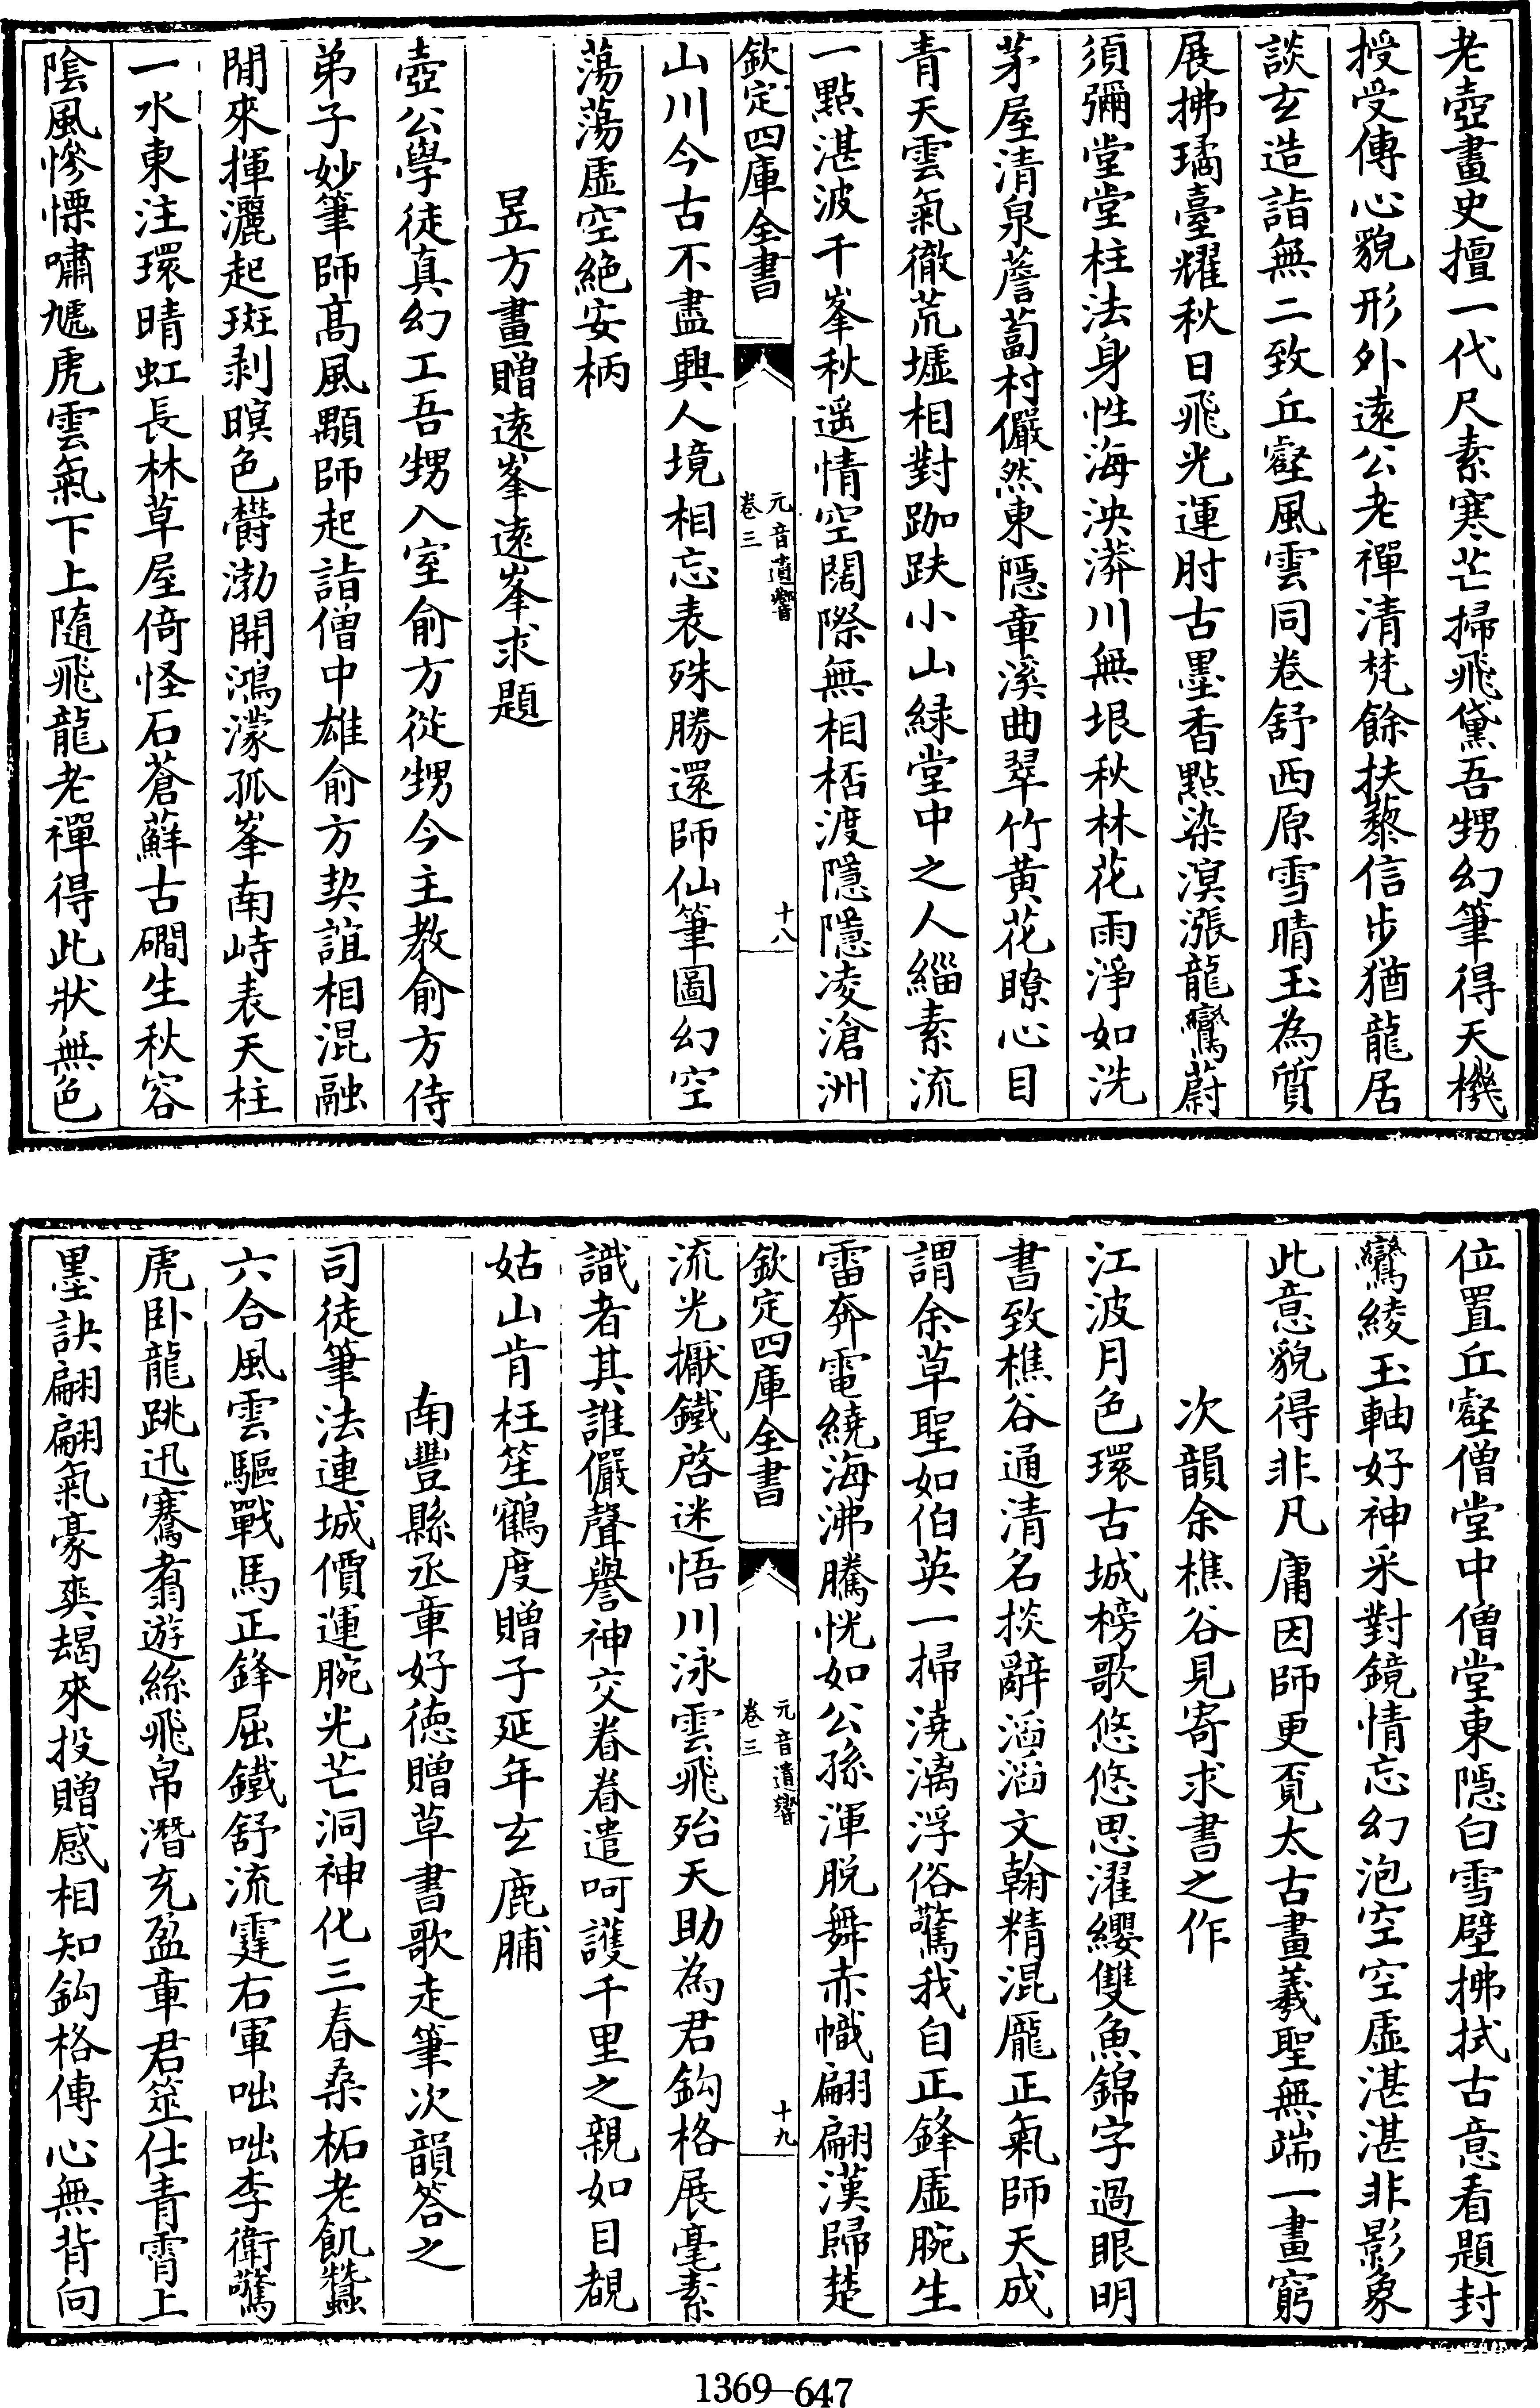 老壺畫史擅一代尺素寒芒掃飛黛吾甥幻筆得天機
授受傳心貌形外遠公老禪清梵餘扶藜信步猶龍居
談玄造詣無二致丘壑風雲同卷舒西原雪晴玉為質
展拂璚臺耀秋日飛光運肘古墨香點染溟漲龍鸞蔚
須彌堂堂柱法身性海泱漭川無垠秋林花雨淨如洗
茅屋清泉薝蔔村儼然東隱章溪曲翠竹黄花瞭心目
青天雲氣徹荒墟相對跏趺小山緑堂中之人緇素流
一點湛波千峯秋遥情空闊際無相桮渡隱隱凌滄洲
欽定四庫全書
元音遺響
卷三
十八
山川今古不盡興人境相忘表殊勝還師仙筆圖幻空
蕩蕩虛空絶安柄
昱方畫贈遠峯遠峯求題
壺公學徒真幻工吾甥入室俞方從甥今主教俞方侍
弟子妙筆師髙風顒師起詣僧中雄俞方契誼相混融
閒來揮灑起斑剥暝色欝渤開鴻濛孤峯南峙表天柱
一水東注環晴虹長林草屋倚怪石蒼蘚古磵生秋容
隂風慘慄嘯虓虎雲氣下上隨飛龍老禪得此狀無色
位置丘壑僧堂中僧堂東隱白雪壁拂拭古意看題封
鸞綾玉軸好神采對鏡情忘幻泡空空虛湛湛非影象
此意貌得非凡庸因師更覓太古畫羲聖無端一畫窮
次韻余樵谷見寄求書之作
江波月色環古城榜歌悠悠思濯纓雙魚錦字過眼明
書致樵谷通清名掞辭滔滔文翰精混厖正氣師天成
謂余草聖如伯英一掃澆漓浮俗驚我自正鋒虛腕生
雷奔電繞海沸騰恍如公孫渾脱舞赤幟翩翩漢歸楚
欽定四庫全書
元音遺響
卷三
十九
流光擫鐵啓迷悟川泳雲飛殆天助為君鈎格展毫素
識者其誰儼聲譽神交眷眷遣呵護千里之親如目覩
姑山肯枉笙鶴度贈子延年玄鹿脯
南豐縣丞章好德贈草書歌走筆次韻答之
司徒筆法連城價運腕光芒洞神化三春桑柘老飢蠶
六合風雲驅戰馬正鋒屈鐵舒流霆右軍咄咄李衛驚
虎卧龍跳迅騫翥遊絲飛帛潛充盈章君筮仕青霄上
墨訣翩翩氣豪爽朅來投贈感相知鈎格傳心無背向
1369—647